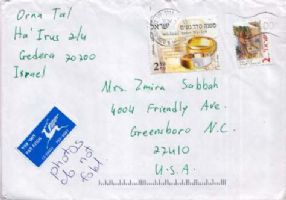 Orna Tal
Ha'Irus 2/4
Gedera 70200
Israel
Mrs. Zmira Sabbah
4004 Friendly Ave.
Greensboro N.C.
22410
U.S.A.
photos
do not
fold